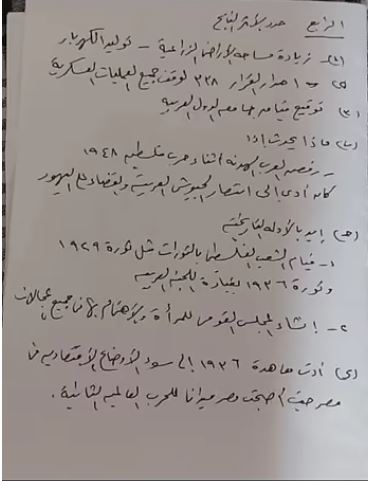 الرابع حدد الأثر الناتج
(١) زيادة مساحة الأراضى الزراعية - توليد الكهرباء
(٢) اصدار القرار ٣٣٨ لوقف جميع العمليات العسكرية
(٣) توقيع ميثاق جامعه الدول العربيه
(ب) ماذا يحدث إذا
- رفض العرب الهدنه أثناء حرب فلسطين ١٩٤٨
كان أدى إلى انتصار الجيوش العربية والقضاء على اليهود
(جـ) ايد بالأدله التاريخية
١- قيام الشعب الفلسطينى بالثورات مثل ثورة ١٩٢٩
وثورة ١٩٣٦ بقيادة اللجنة العربيه
٢- إنشاء المجلس القومى للمرأة والاهتمام بها فى جميع المجالات
(د) أدت معاهدة ١٩٣٦ إلى سوء الأوضاع الاقتصاديه فى
مصر حيث أصبحت مصر ميدانا للحرب العالميه الثانية.